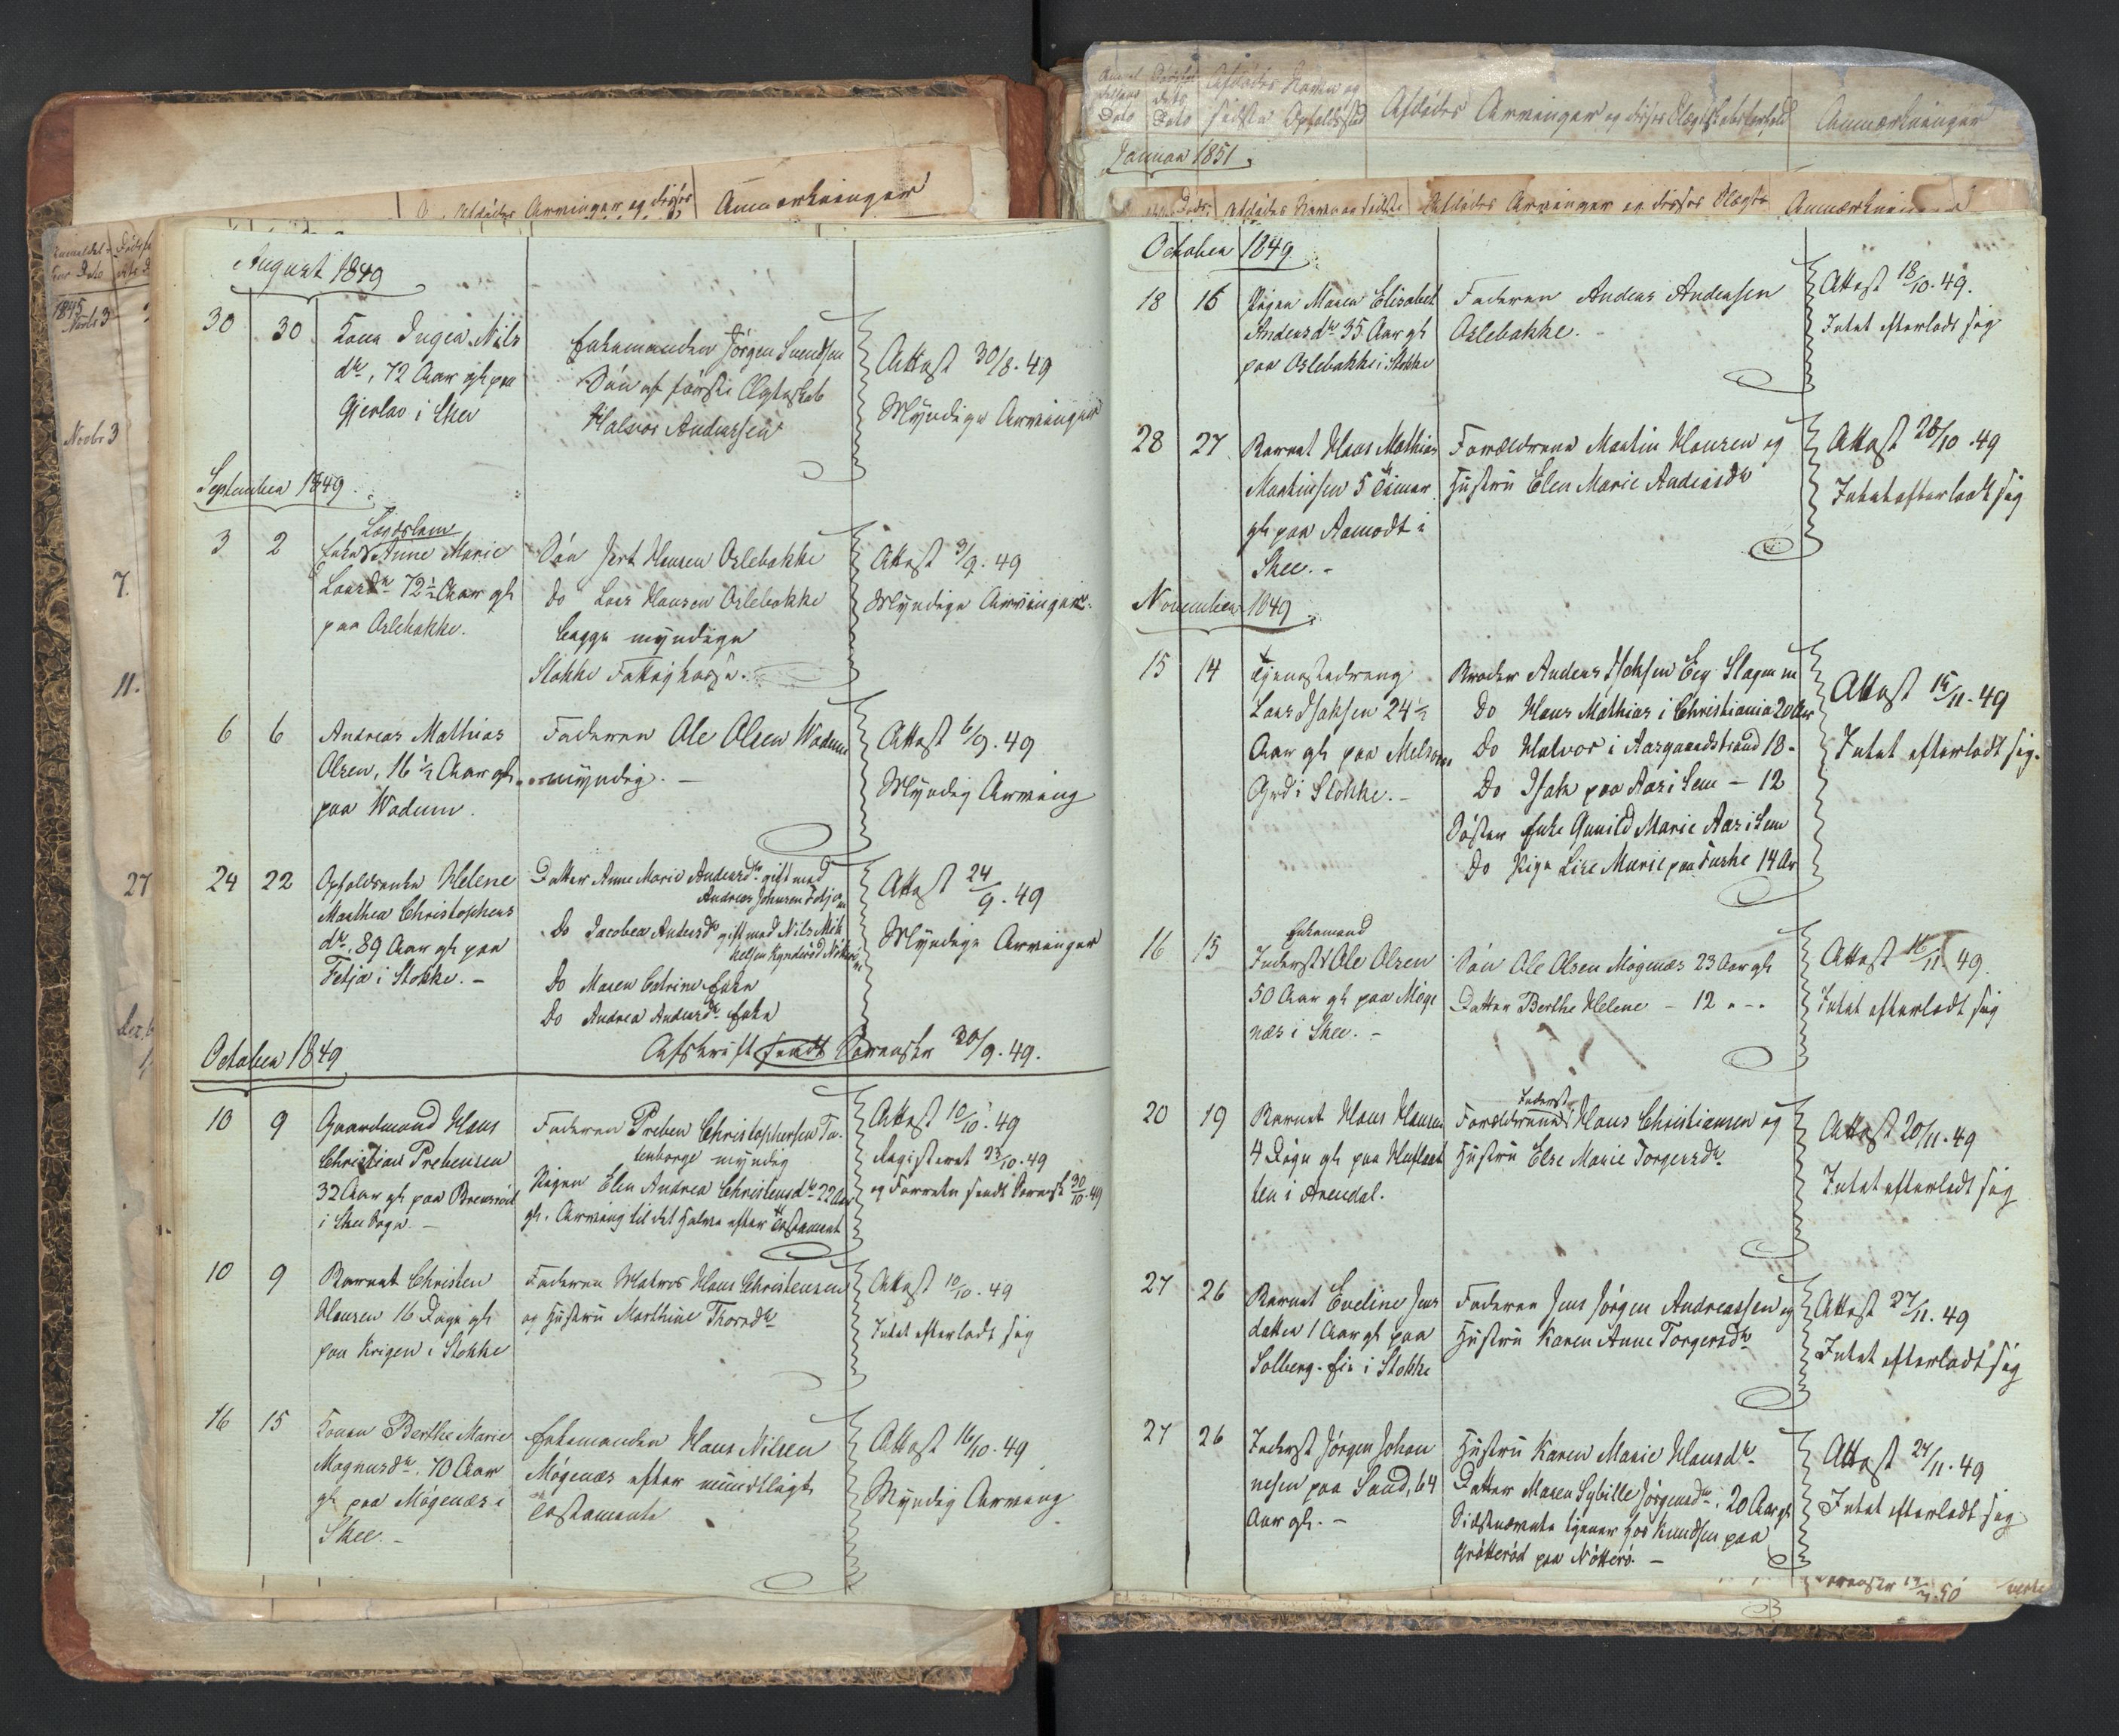 August 1849
30 30 Kona Ingea Nils
dtr, 72 Aar gl paa
Gjerlao i Skee
Enkemanden Jørgen Svendsen
Søn af første Ægteskab
Halvor Andersen
Attest 30/8. 49
Myndige Arvinger
September 1849.
3 2 Lægdslem
Enke Anne Marie
Larsdtr 72½ Aar gl
paa Oslebakke.
Søn Jert Hansen Oslebakke
Do Lars Hansen Oslebakke
begge myndige
Stokke Fattigkasse.
Attest 3/9. 49
Myndige Arvinger.
6 6 Andreas Mathias
Olsen, 16½ Aar gl
paa Wadum.
Faderen Ole Olsen Wadum
myndig. –
Attest 6/9. 49
Myndig Arving
24 22 Opholdsenke Helene
Marthea Christophers
dtr, 89 Aar gl paa
Fetja i Stokke. –
Datter Anne Marie Andersdtr gift med
Andreas Johnsen
Do Jacobea Andersdtr gift med Nils Mik
kelsen
Do Maren Catrine Enke
Do Andrea Andersdtr Enke
Attest 24/9. 49
Myndige Arvinger
Afskrift sendt Sorenskr 30/9. 49.
October 1849
10 9 Gaardmand Hans
Christian Prebensen
32 Aar gl paa
i Skee Sogn. –
Faderen Preben Christophersen
myndig
Pigen Elen Andrea Christensdtr 22 Aar
gl. Arving til det halve efter Testament
Attest 10/10. 49
Registeret 23/10. 49
og Forretn sendt Sorensk 30/10. 49
10 9 Barnet Christen
Hansen 16 Dage gl
paa Krigen i Stokke
Faderen Matros Hans Christensen
og Hustru Marthine Thorsdtr
Attest 10/10. 49
Intet efterladt sig
16 15 Konen Berthe Marie
Magnusdtr. 70 Aar
gl paa Møgenæs i
Skee. –
Enkemanden Hans Nilsen
Møgenæs efter mundtligt
Testamente
Attest 16/10. 49
Myndig Arving
October 1849
18 16 Pigen Maren Elisabet
Andersdtr 35 Aar gl
paa Oslebakke i Stokke
Faderen Anders Andersen
Oslebakke. –
Attest 18/10. 49.
Intet efterladt sig
28 27 Barnet Hans Mathias
Martinsen 5 Timer
gl paa Aamodt i
Skee. –
Forældrene Martin Hansen og
Hustru Elen Marie Andersdtr
Attest 28/10. 49
Intet efterladt sig
November 1849
15 14 Tjenestedreng
Lars Isaksen 24½
Aar gl paa Melsom
Grd i Stokke. –
Broder Anders Isaksen Eeg Slagen m
Do Hans Mathias i Christiania 20 Aar
Do Halvor i Aasgaardstrand 18 –
Do Isak paa Aas i Sem – 12
Søster Enke Gunild Marie Aas i Sem
Do Pige Lise Marie paa 14 Ar
Attest 15/11. 49
Intet efterladt sig.
16 15 Enkemand
Inderst Ole Olsen
50 Aar gl paa Møge
næs i Skee. –
Søn Ole Olsen Møgenæs 23 Aar gl
Datter Berthe Helene – 12 " – "
Attest 16/11. 49.
Intet efterladt sig
20 19 Barnet Hans Hansen
4 Dage gl paa
ten i Arendal.
Inderst
Forældrene Hans Christiansen og
Hustru Else Marie Torgersdtr
Attest 20/11. 49
Intet efterladt sig
27 26 Barnet Eveline Jens
datter 1 Aar gl paa
Solberg. Eie i Stokke
Faderen Jens Jørgen Andreassen og
Hustru Karen Anne Torgersdtr
Attest 27/11. 49
Intet efterladt sig
27 26 Inderst Jørgen Johan
nesen paa Sand, 64
Aar gl. –
Hustru Karen Marie Hansdtr
Datter Maren Sybille Jørgensdtr. 20 Aar gl
Sidstnævnte tjener hos Knudsen paa
Grøtterød paa Nøtterø. –
Attest 27/11. 49
Intet efterladt sig
Afdødes Navn og
sidste Opholdssted
Afdødes Arvinger og disses Slægtskabsforhold
Anmærkninger
Januar 1851
Afdødes Arvinger og disses
Anmærkninger
Afdødes Navn og sidste
Afdødes Arvinger og disses Slægts
Anmærkninger
1845
Novbr 3
Novbr 3
7.
11.
27